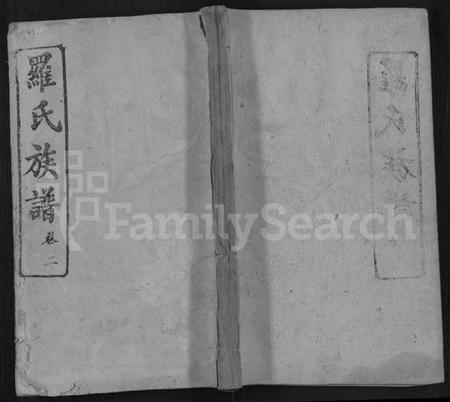 羅氏族譜
卷二
FamilySearch
羅氏族